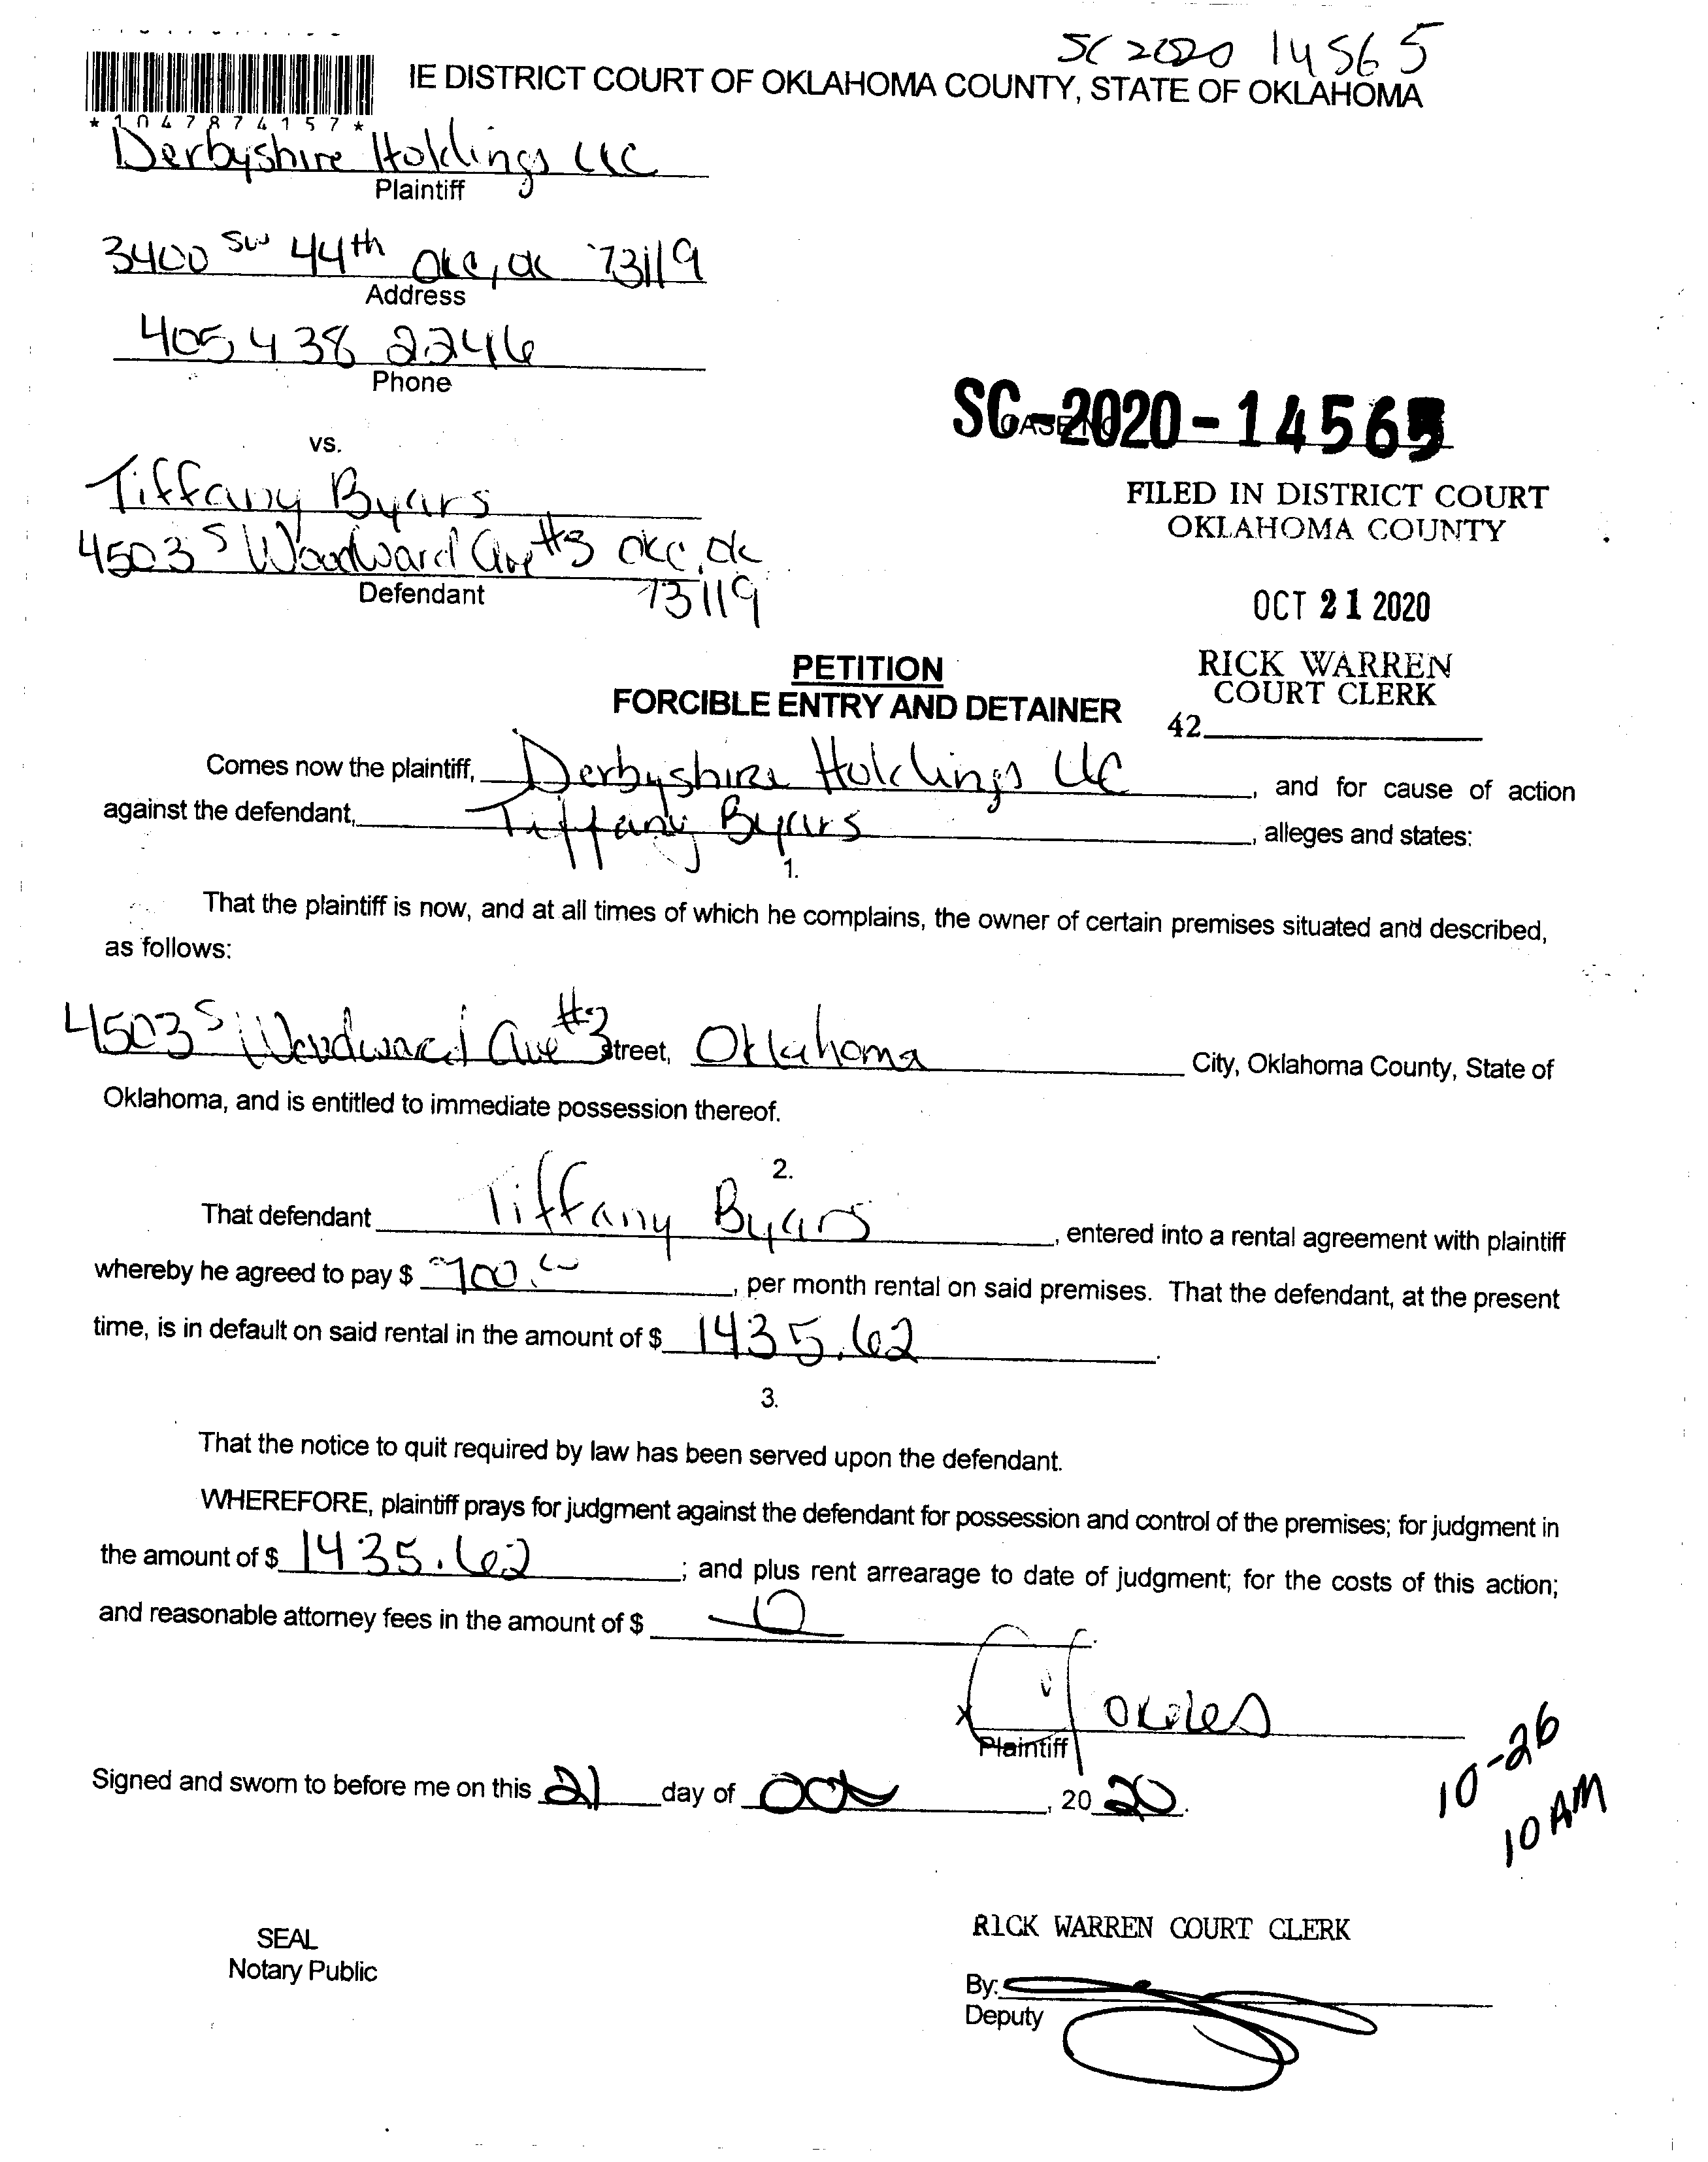 SC 2020 14565
IE DISTRICT COURT OF OKLAHOMA COUNTY, STATE OF OKLAHOMA
* 1 0 4 7 8 7 4 1 5 7 *
Derbyshire Holdings LLC
Plaintiff
3400 SW 44th OKC, OK 73119
Address
405 438 2246
Phone
SC-2020-14565
CASE NO
vs.
Tiffany Byars
4503 S Woodward Ave #3 OKC, OK
73119
Defendant
FILED IN DISTRICT COURT
OKLAHOMA COUNTY
OCT 21 2020
RICK WARREN
COURT CLERK
42
PETITION
FORCIBLE ENTRY AND DETAINER
Comes now the plaintiff, Derbyshire Holdings LLC, and for cause of action
against the defendant, Tiffany Byars, alleges and states:
1.
That the plaintiff is now, and at all times of which he complains, the owner of certain premises situated and described,
as follows:
4503 S Woodward Ave #3 Street, Oklahoma City, Oklahoma County, State of
Oklahoma, and is entitled to immediate possession thereof.
2.
That defendant Tiffany Byars, entered into a rental agreement with plaintiff
whereby he agreed to pay $ 700.00, per month rental on said premises. That the defendant, at the present
time, is in default on said rental in the amount of $ 1435.62.
3.
That the notice to quit required by law has been served upon the defendant.
WHEREFORE, plaintiff prays for judgment against the defendant for possession and control of the premises; for judgment in
the amount of $ 1435.62; and plus rent arrearage to date of judgment; for the costs of this action;
and reasonable attorney fees in the amount of $ 0
x
Plaintiff
Signed and sworn to before me on this 21 day of Oct, 20 20.
10-26
10 AM
SEAL
Notary Public
RICK WARREN COURT CLERK
By:
Deputy